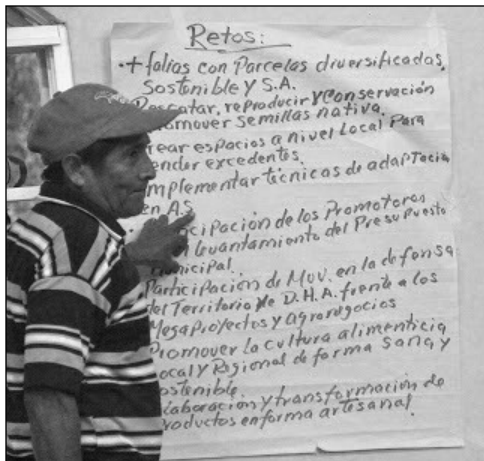 Retos:
+ folias con Parcelas diversificadas,
Sostenible y S.A.
Rescatar, reproducir y conservación
Promover semillas nativa.
rear espacios a nivel Local Para
ender excedentes.
mplementar técnicas de adaptacia
en A.S
cipación de los Promotores
n levantamiento del Presupuesto
Municipal.
Participación de Mov. en la defensa
del Territorio de D.H.A. frente a los
Megaproyectos y agronegocios
Promover la cultura alimenticia
Local y Regional de forma sana y
ostenible.
laboración y transformación de
roductos en forma artesanal